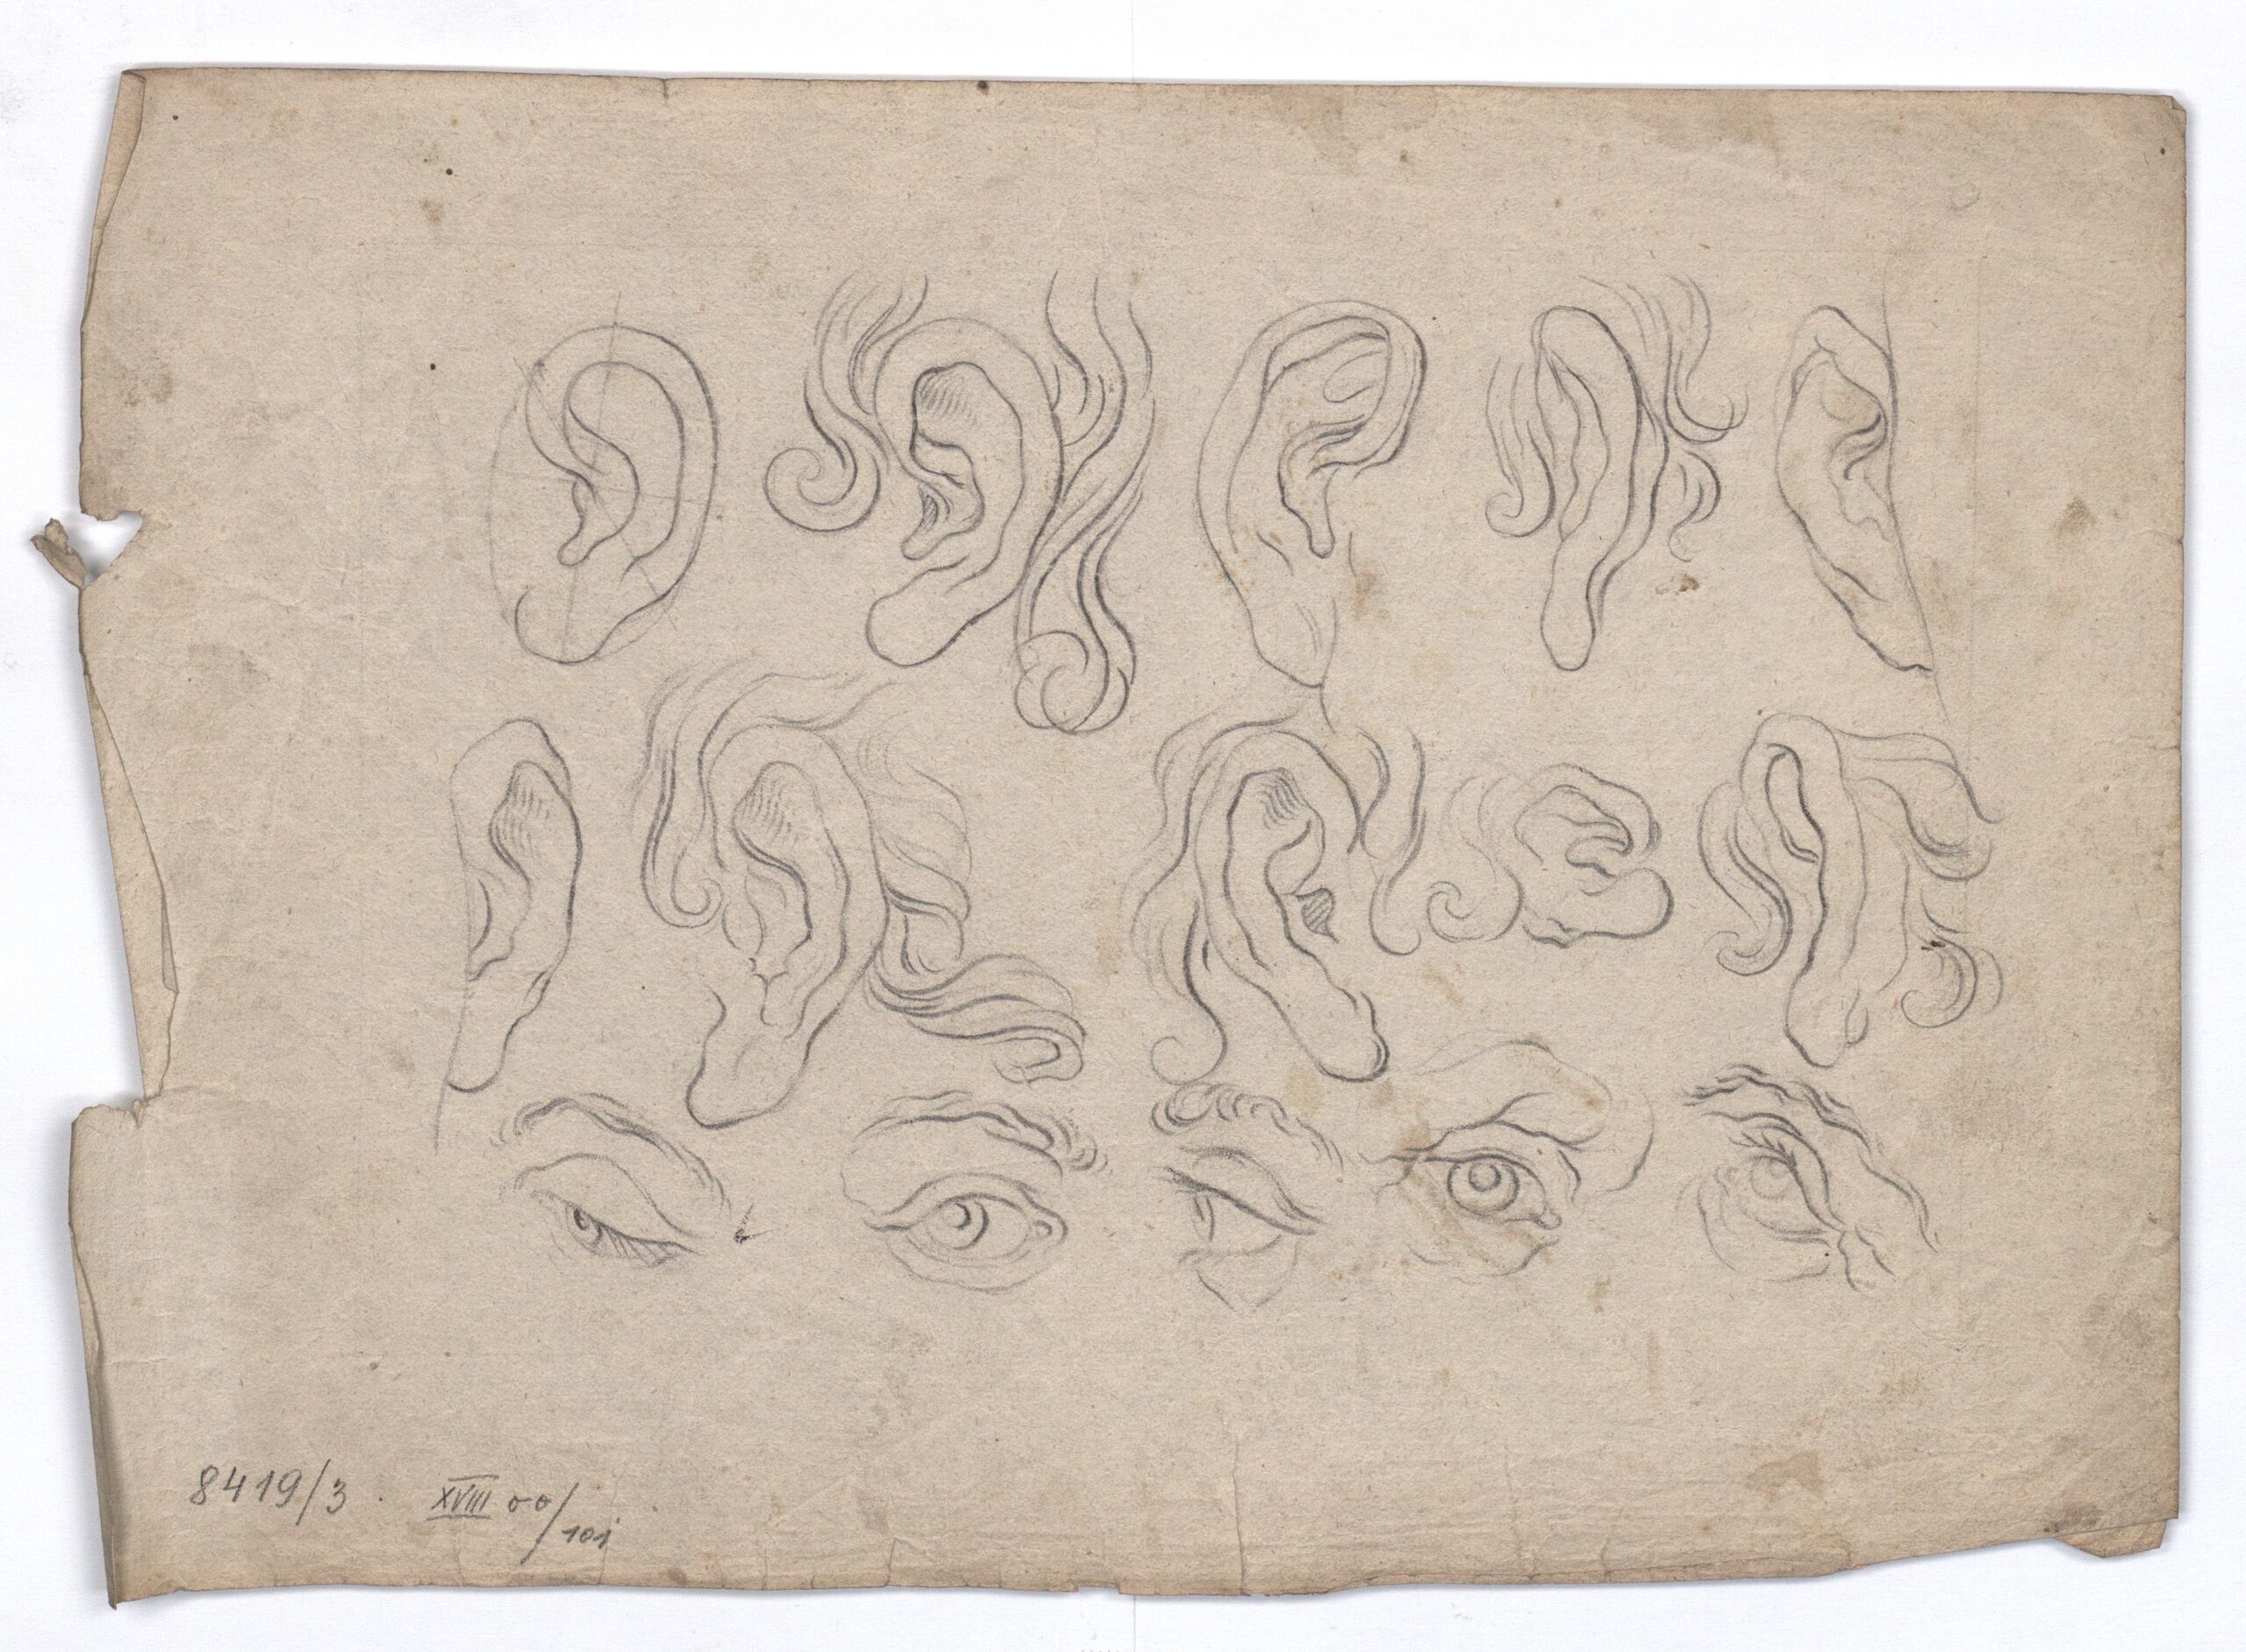 8419/3. XVIII oo/101